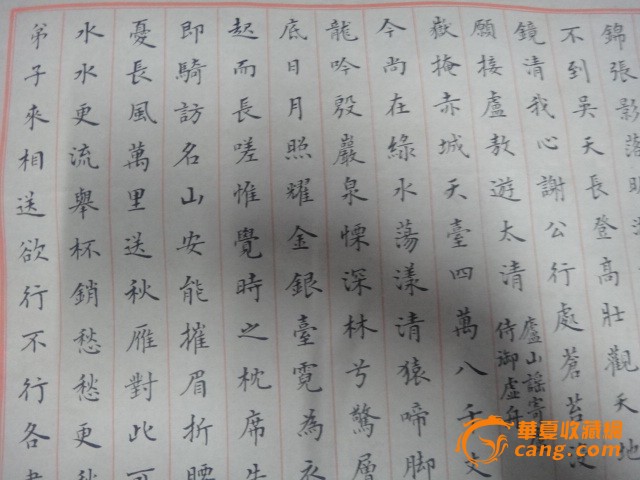 錦張影落明
不到吳天長登高壯觀天地
鏡清我心謝公行處蒼苔沒
願接盧敖遊太清 廬山謠寄
侍御虛舟
嶽掩赤城天臺四萬八千丈
今尚在綠水蕩漾清猿啼腳
龍吟殷巖泉慄深林兮驚層
底日月照耀金銀臺霓為衣
起而長嗟惟覺時之枕席
即騎訪名山安能摧眉折腰
憂長風萬里送秋雁對此可
水水更流舉杯銷愁愁更愁
弟子來相送欲行不行各
華夏收藏網
cang.com